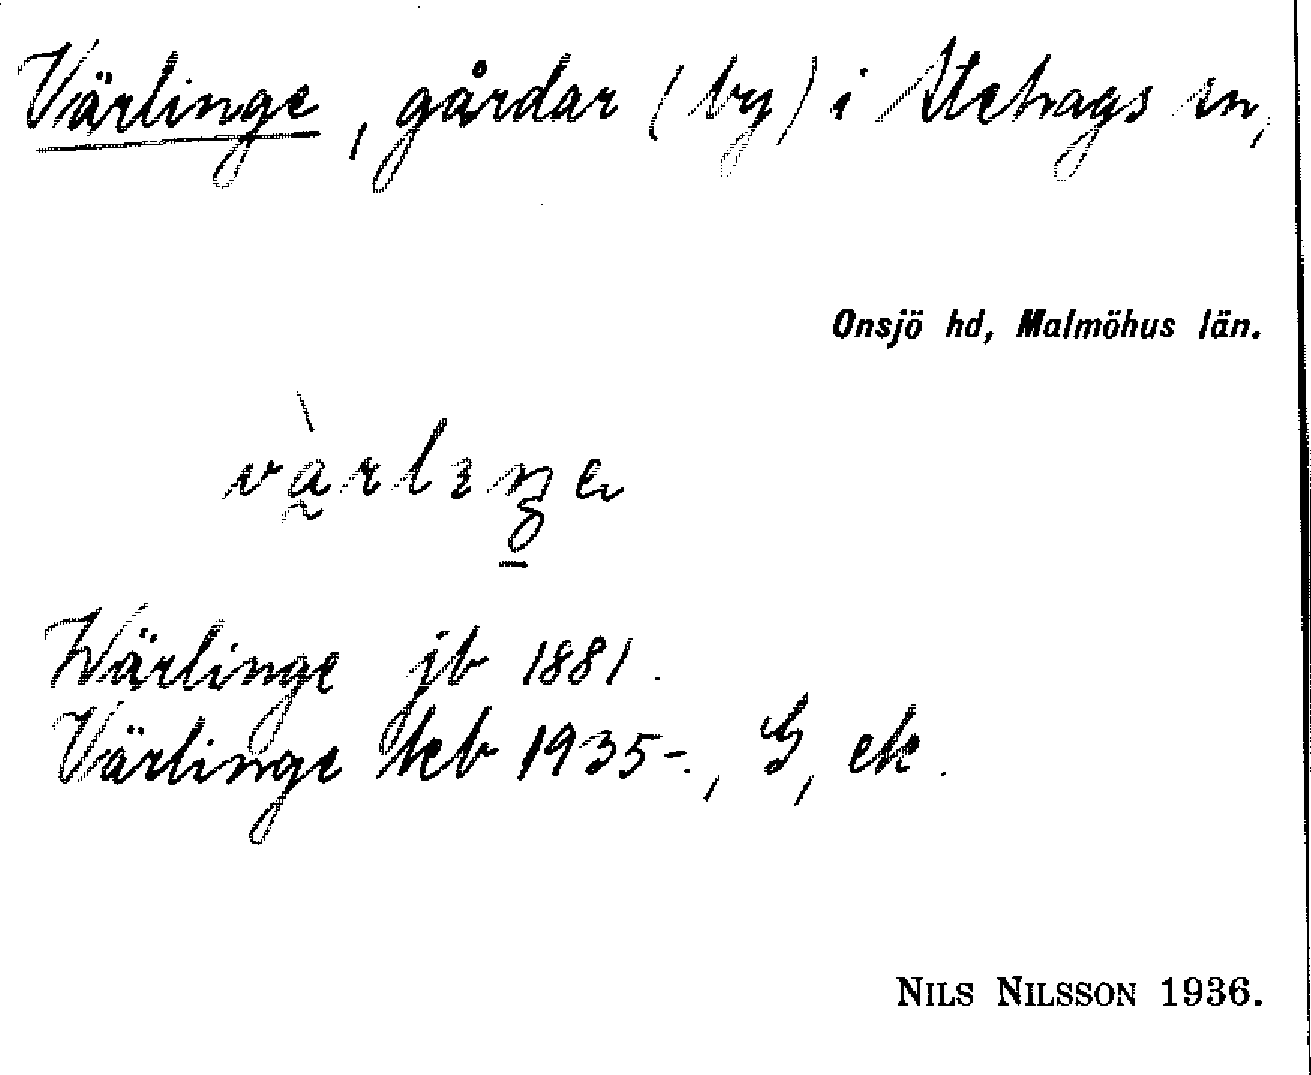 Värlinge, gårdar (by) i Stehags sn,
Onsjö hd, Malmöhus län.
Wärlinge jb 1881.
Värlinge tkb 1935-., G, ek.
NILS NILSSON 1936.